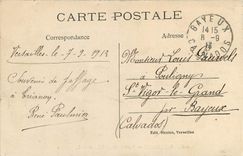 CARTE POSTALE
Correspondance
Adresse
BAYEUX
14 15
8 - 9
13
CALVADOS
Versailles le 7-9-1913
Souvenir de passage
à Trianon
René
Monsieur Louis
à
St Vigor le Grand
par Bayeux
(Calvados)
Edit. Versailles